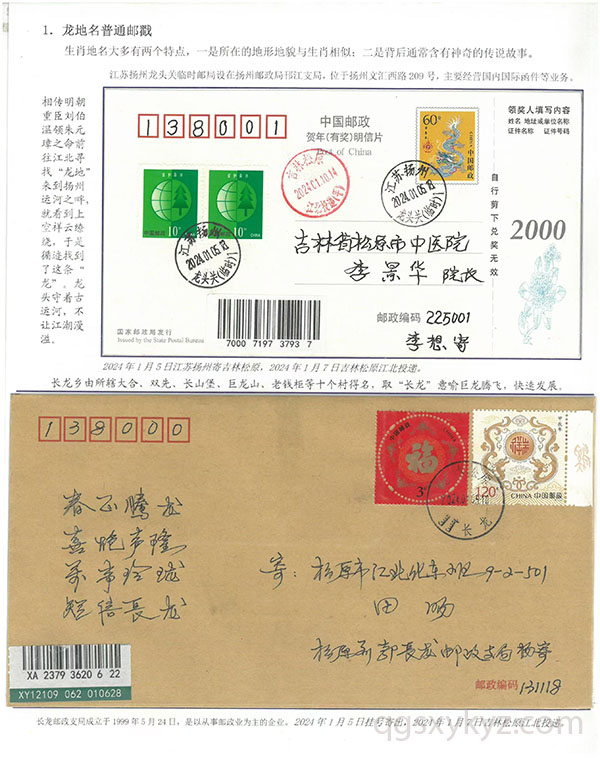 1. 龙地名普通邮戳
生肖地名大多有两个特点，一是所在的地形地貌与生肖相似；二是背后通常含有神奇的传说故事。
江苏扬州龙头关临时邮局设在扬州邮政局邗江支局，位于扬州文汇西路 209 号，主要经营国内国际函件等业务。
相传明朝
重臣刘伯
温领朱元
璋之命前
往江北寻
找“龙地”
来到扬州
运河之畔，
就看到上
空祥云缭
绕，于是
循迹找到
了这条“
龙”。龙
头守着古
运河，不
让江潮漫
溢。
138001
中国邮政
贺年(有奖)明信片
Post of China
60分
中国邮政
领奖人填写内容
姓名 地址或单位名称
证件名称 证件号码
自行剪下兑奖无效
2000
吉林松原
2024.01.10.14
江苏扬州
2024.01.05
龙头关(临时)
中国邮政 10分
10分 CHINA
江苏扬州
2024.01.05
龙头关(临时)
吉林省松原市中医院
李景华 院长
邮政编码 225001
李想寄
国家邮政局发行
Issued by the State Postal Bureau
7000 7197 3793 7
2024 年 1 月 5 日江苏扬州寄吉林松原，2024 年 1 月 7 日吉林松原江北投递。
长龙乡由所辖大合、双先、长山堡、巨龙山、老钱柜等十个村得名，取“长龙”意喻巨龙腾飞，快速发展。
138000
中国邮政
福
3元
120分
CHINA 中国邮政
长龙
春正腾龙
喜悦声隆
万事玲珑
短信长龙
寄：松原市江北 9-2-501
田
长龙邮政支局 寄
邮政编码 131118
XA 2379 3620 6 22
XY12109 062 010628
长龙邮政支局成立于 1999 年 5 月 24 日，是以从事邮政业为主的企业。2024 年 1 月 5 日挂号寄出，2024 年 1 月 7 日吉林松原江北投递。
qgsxykyz.com